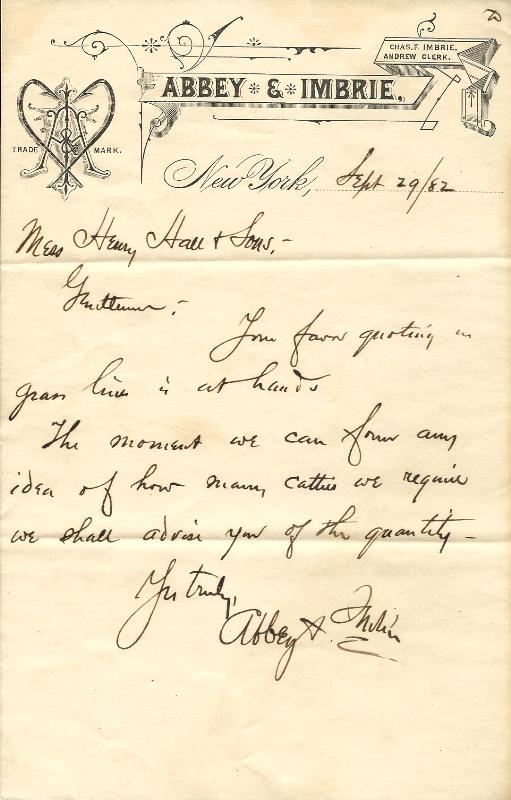 CHAS. F. IMBRIE,
ANDREW CLERK.
ABBEY & IMBRIE,
TRADE MARK.
New York, Sept 29/82
Mess Henry Hall & Sons,-
Gentlemen,-
Your favor quoting us
grass lines is at hand
The moment we can form any
idea of how many catties we require
we shall advise you of the quantity-
Yrs truly,
Abbey & Imbrie